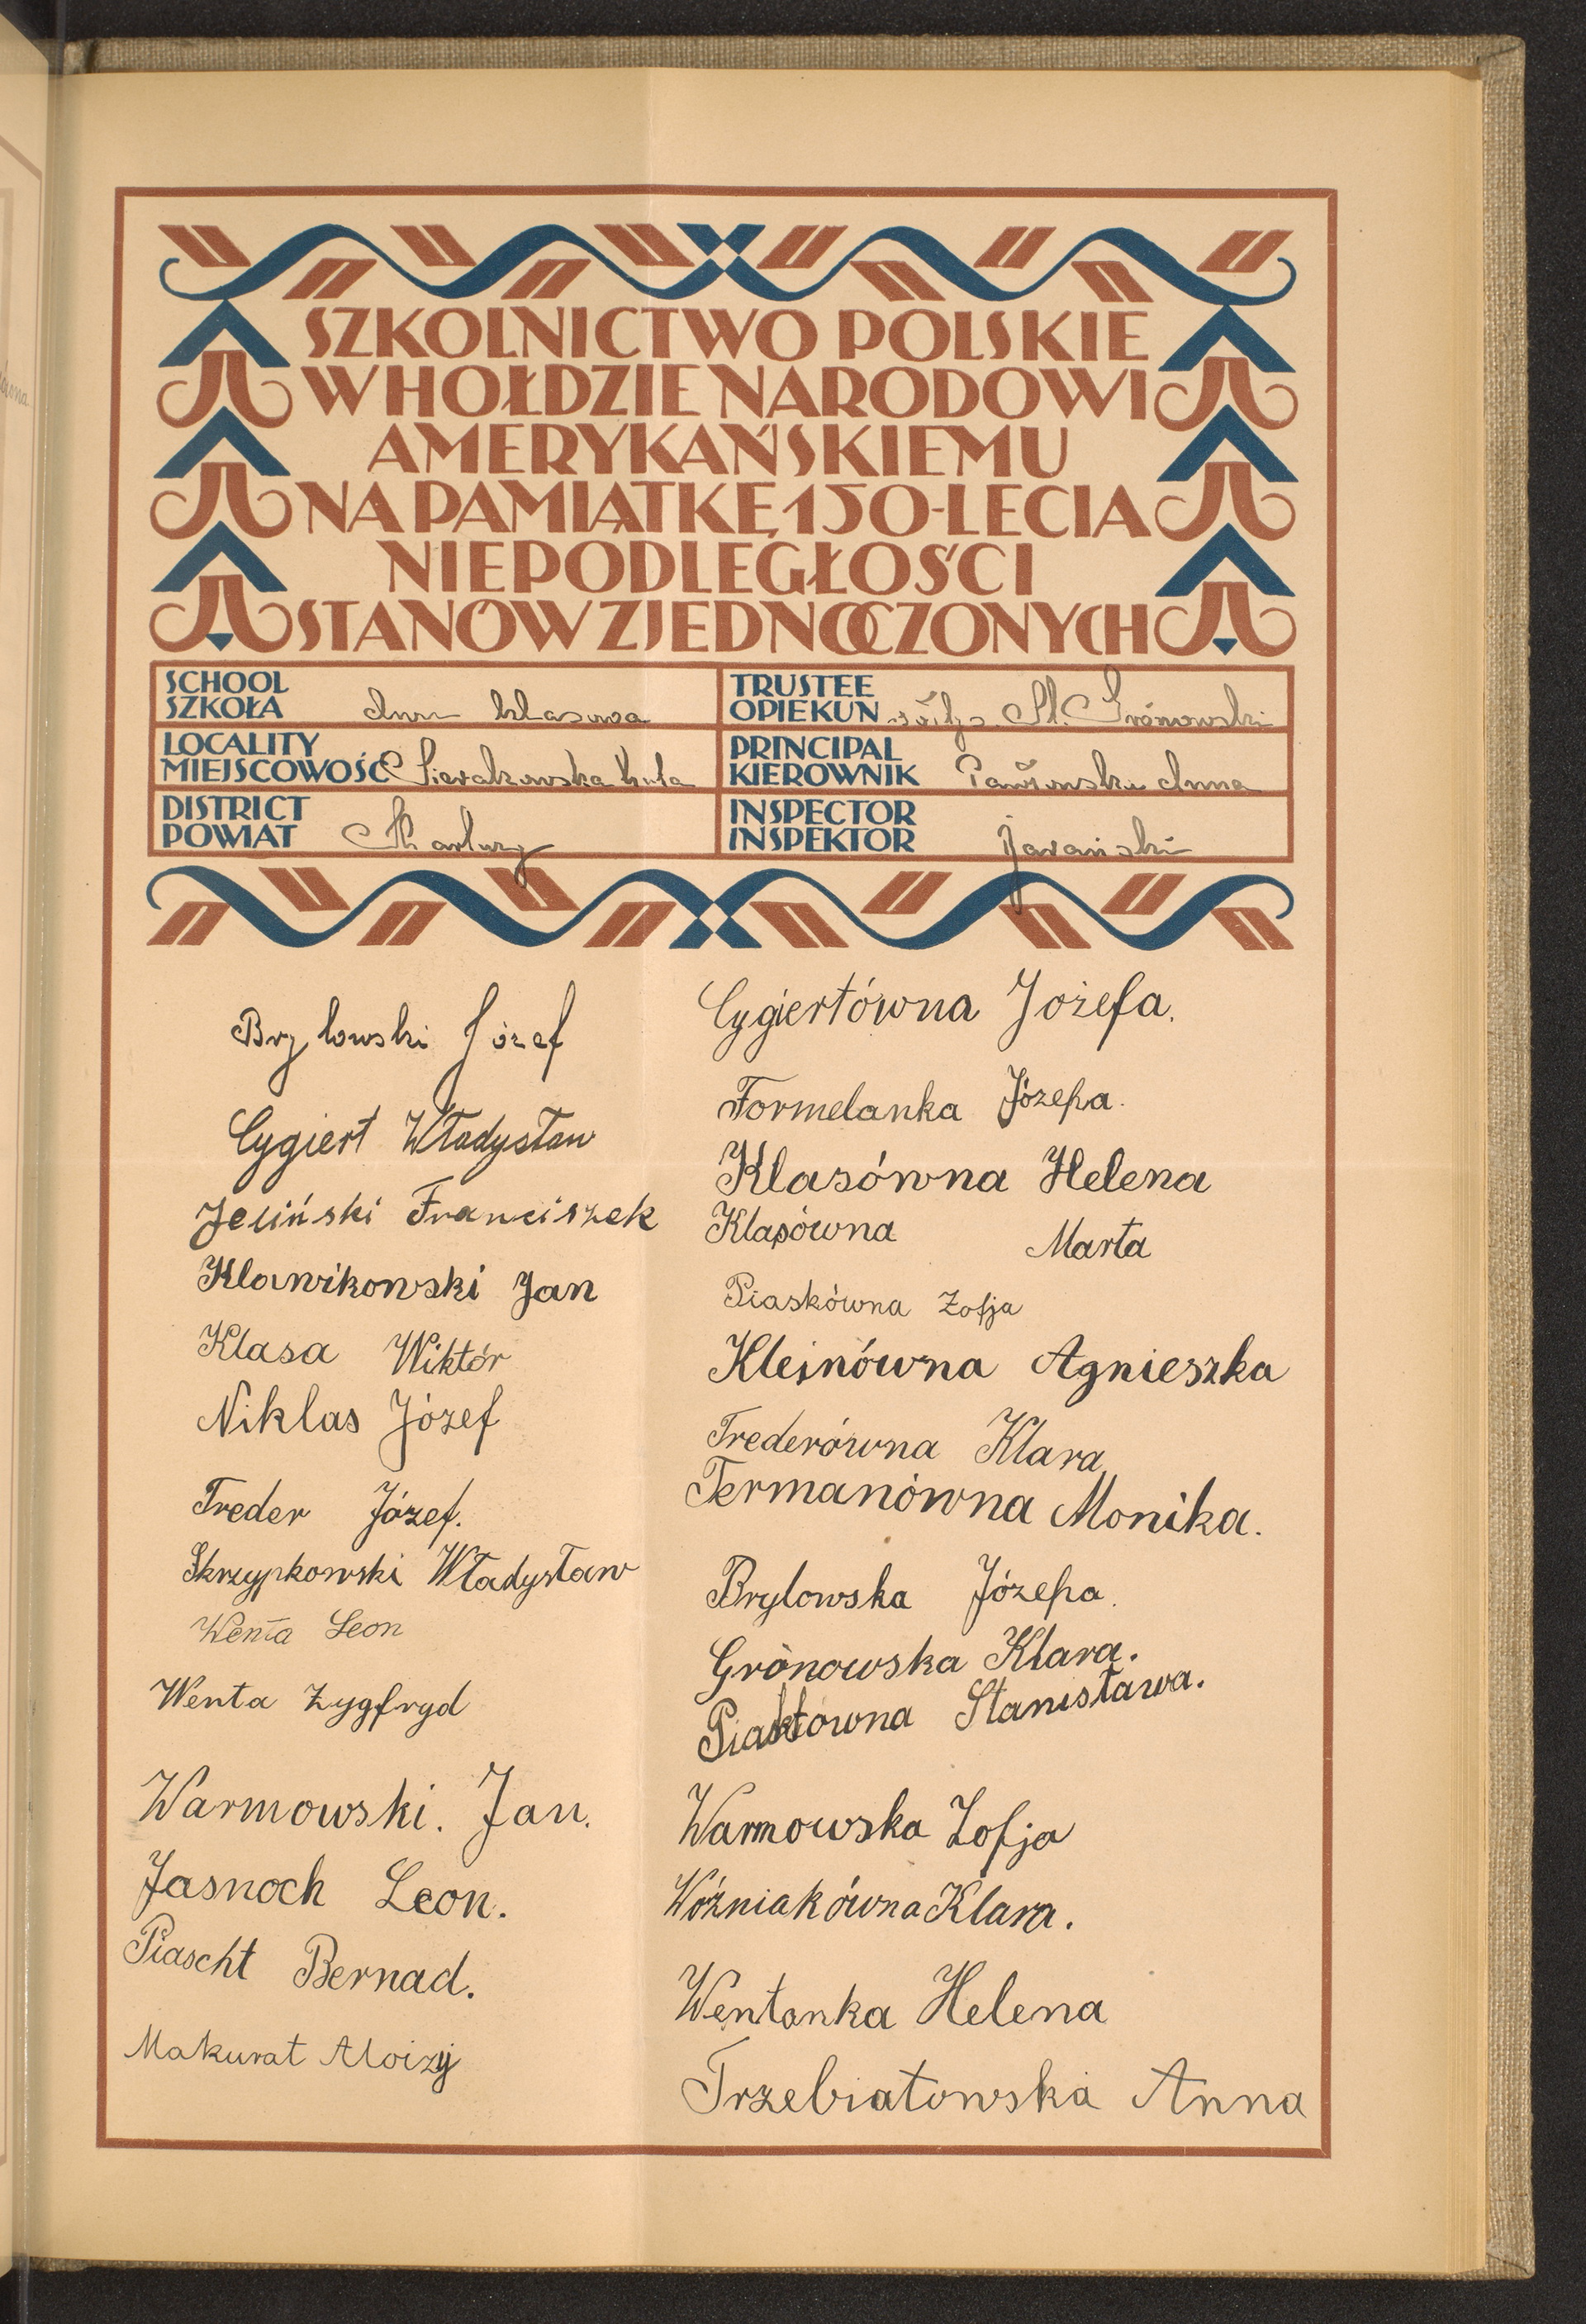 SZKOLNICTWO POLSKIE
W HOŁDZIE NARODOWI
AMERYKAŃSKIEMU
NA PAMIĄTKĘ 150-LECIA
NIEPODLEGŁOŚCI
STANÓW ZJEDNOCZONYCH
SCHOOL
SZKOŁA klasowa
TRUSTEE
OPIEKUN St. Grónowski
LOCALITY
MIEJSCOWOŚĆ Sierakowska huta
PRINCIPAL
KIEROWNIK Pawłowska Anna
DISTRICT
POWIAT Kartuzy
INSPECTOR
INSPEKTOR Jarański
Brylowski Józef
Cygiert Władysław
Jeliński Franciszek
Klawikowski Jan
Klasa Wiktór
Niklas Józef
Treder Józef.
Skrzypkowski Władysław
Wenta Leon
Wenta Zygfryd
Warmowski. Jan.
Jasnoch Leon.
Piascht Bernad.
Makurat Aloizy
Cygiertówna Jożefa.
Formelanka Józefa.
Klasówna Helena
Klasówna Marta
Piaskówna Zofja
Kleinówna Agnieszka
Trederówna Klara
Termanówna Monika.
Brylowska Józefa.
Grónowska Klara.
Piaktówna Stanisława.
Warmowska Zofja
Wóźniakówna Klara.
Wentanka Helena
Trzebiatowska Anna